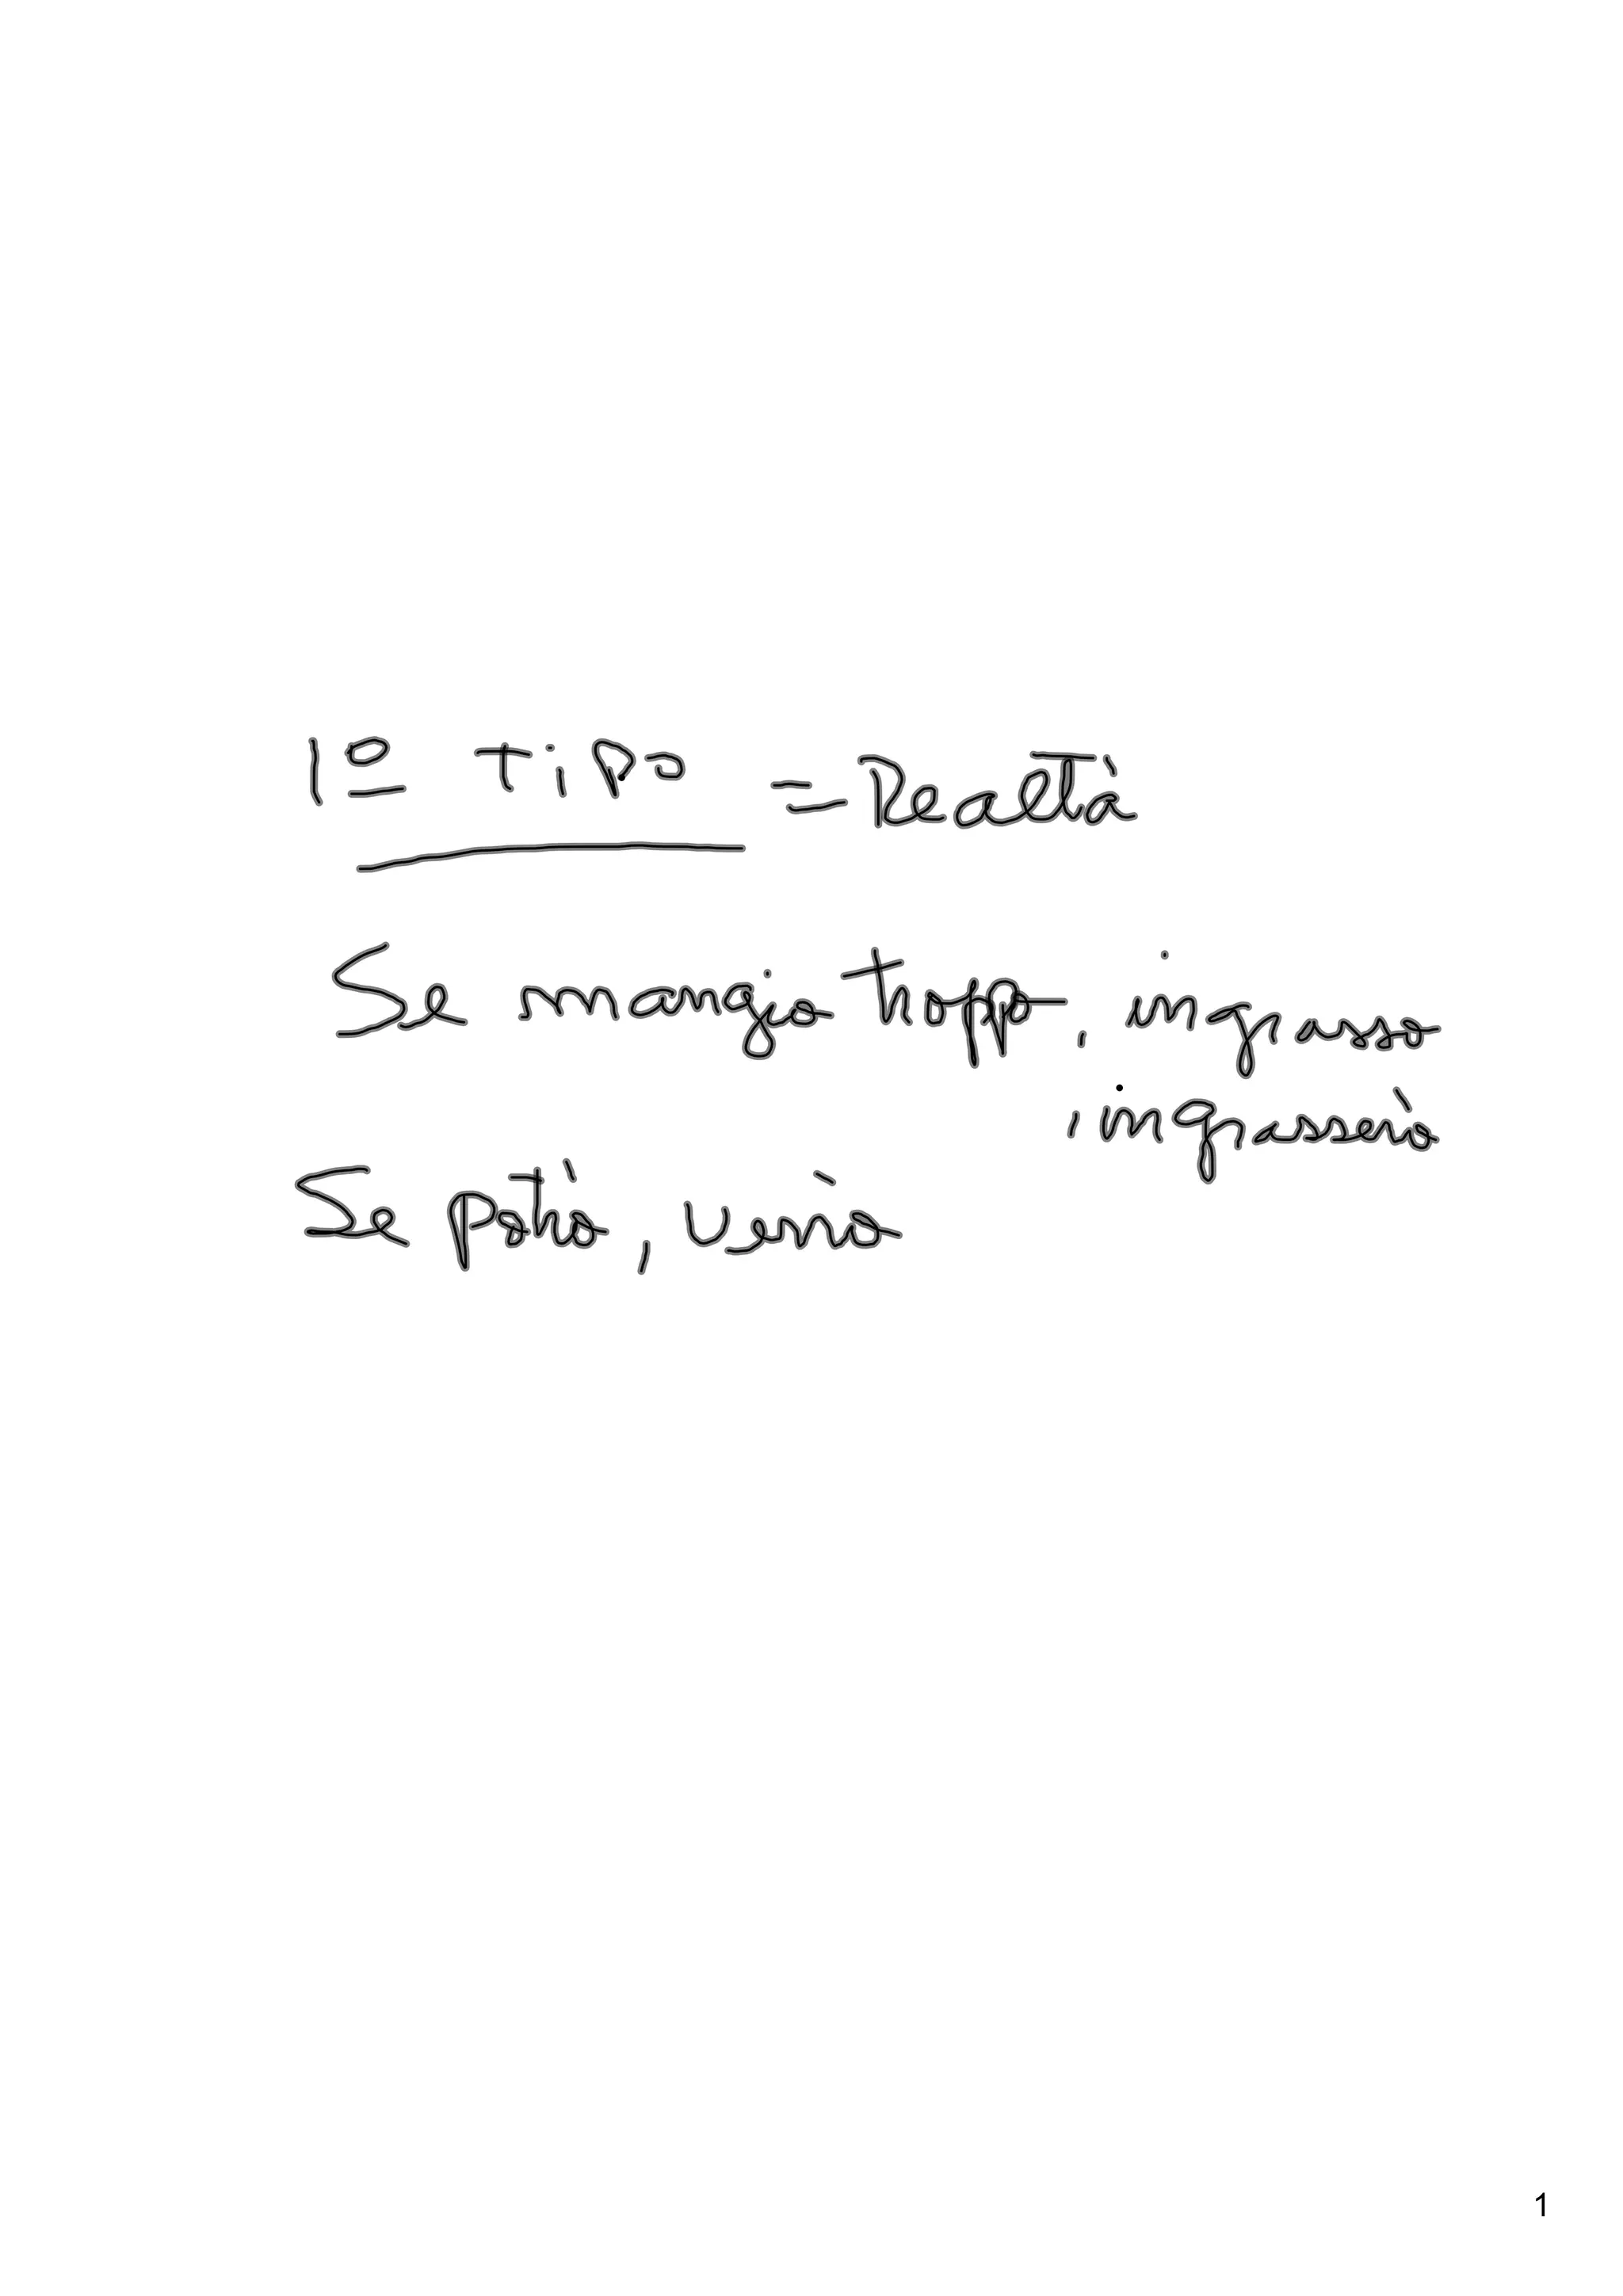 1º tipo = Realtà
Se mangio troppo, ingrasso
, ingrasserò
Se potrò, verrò
1